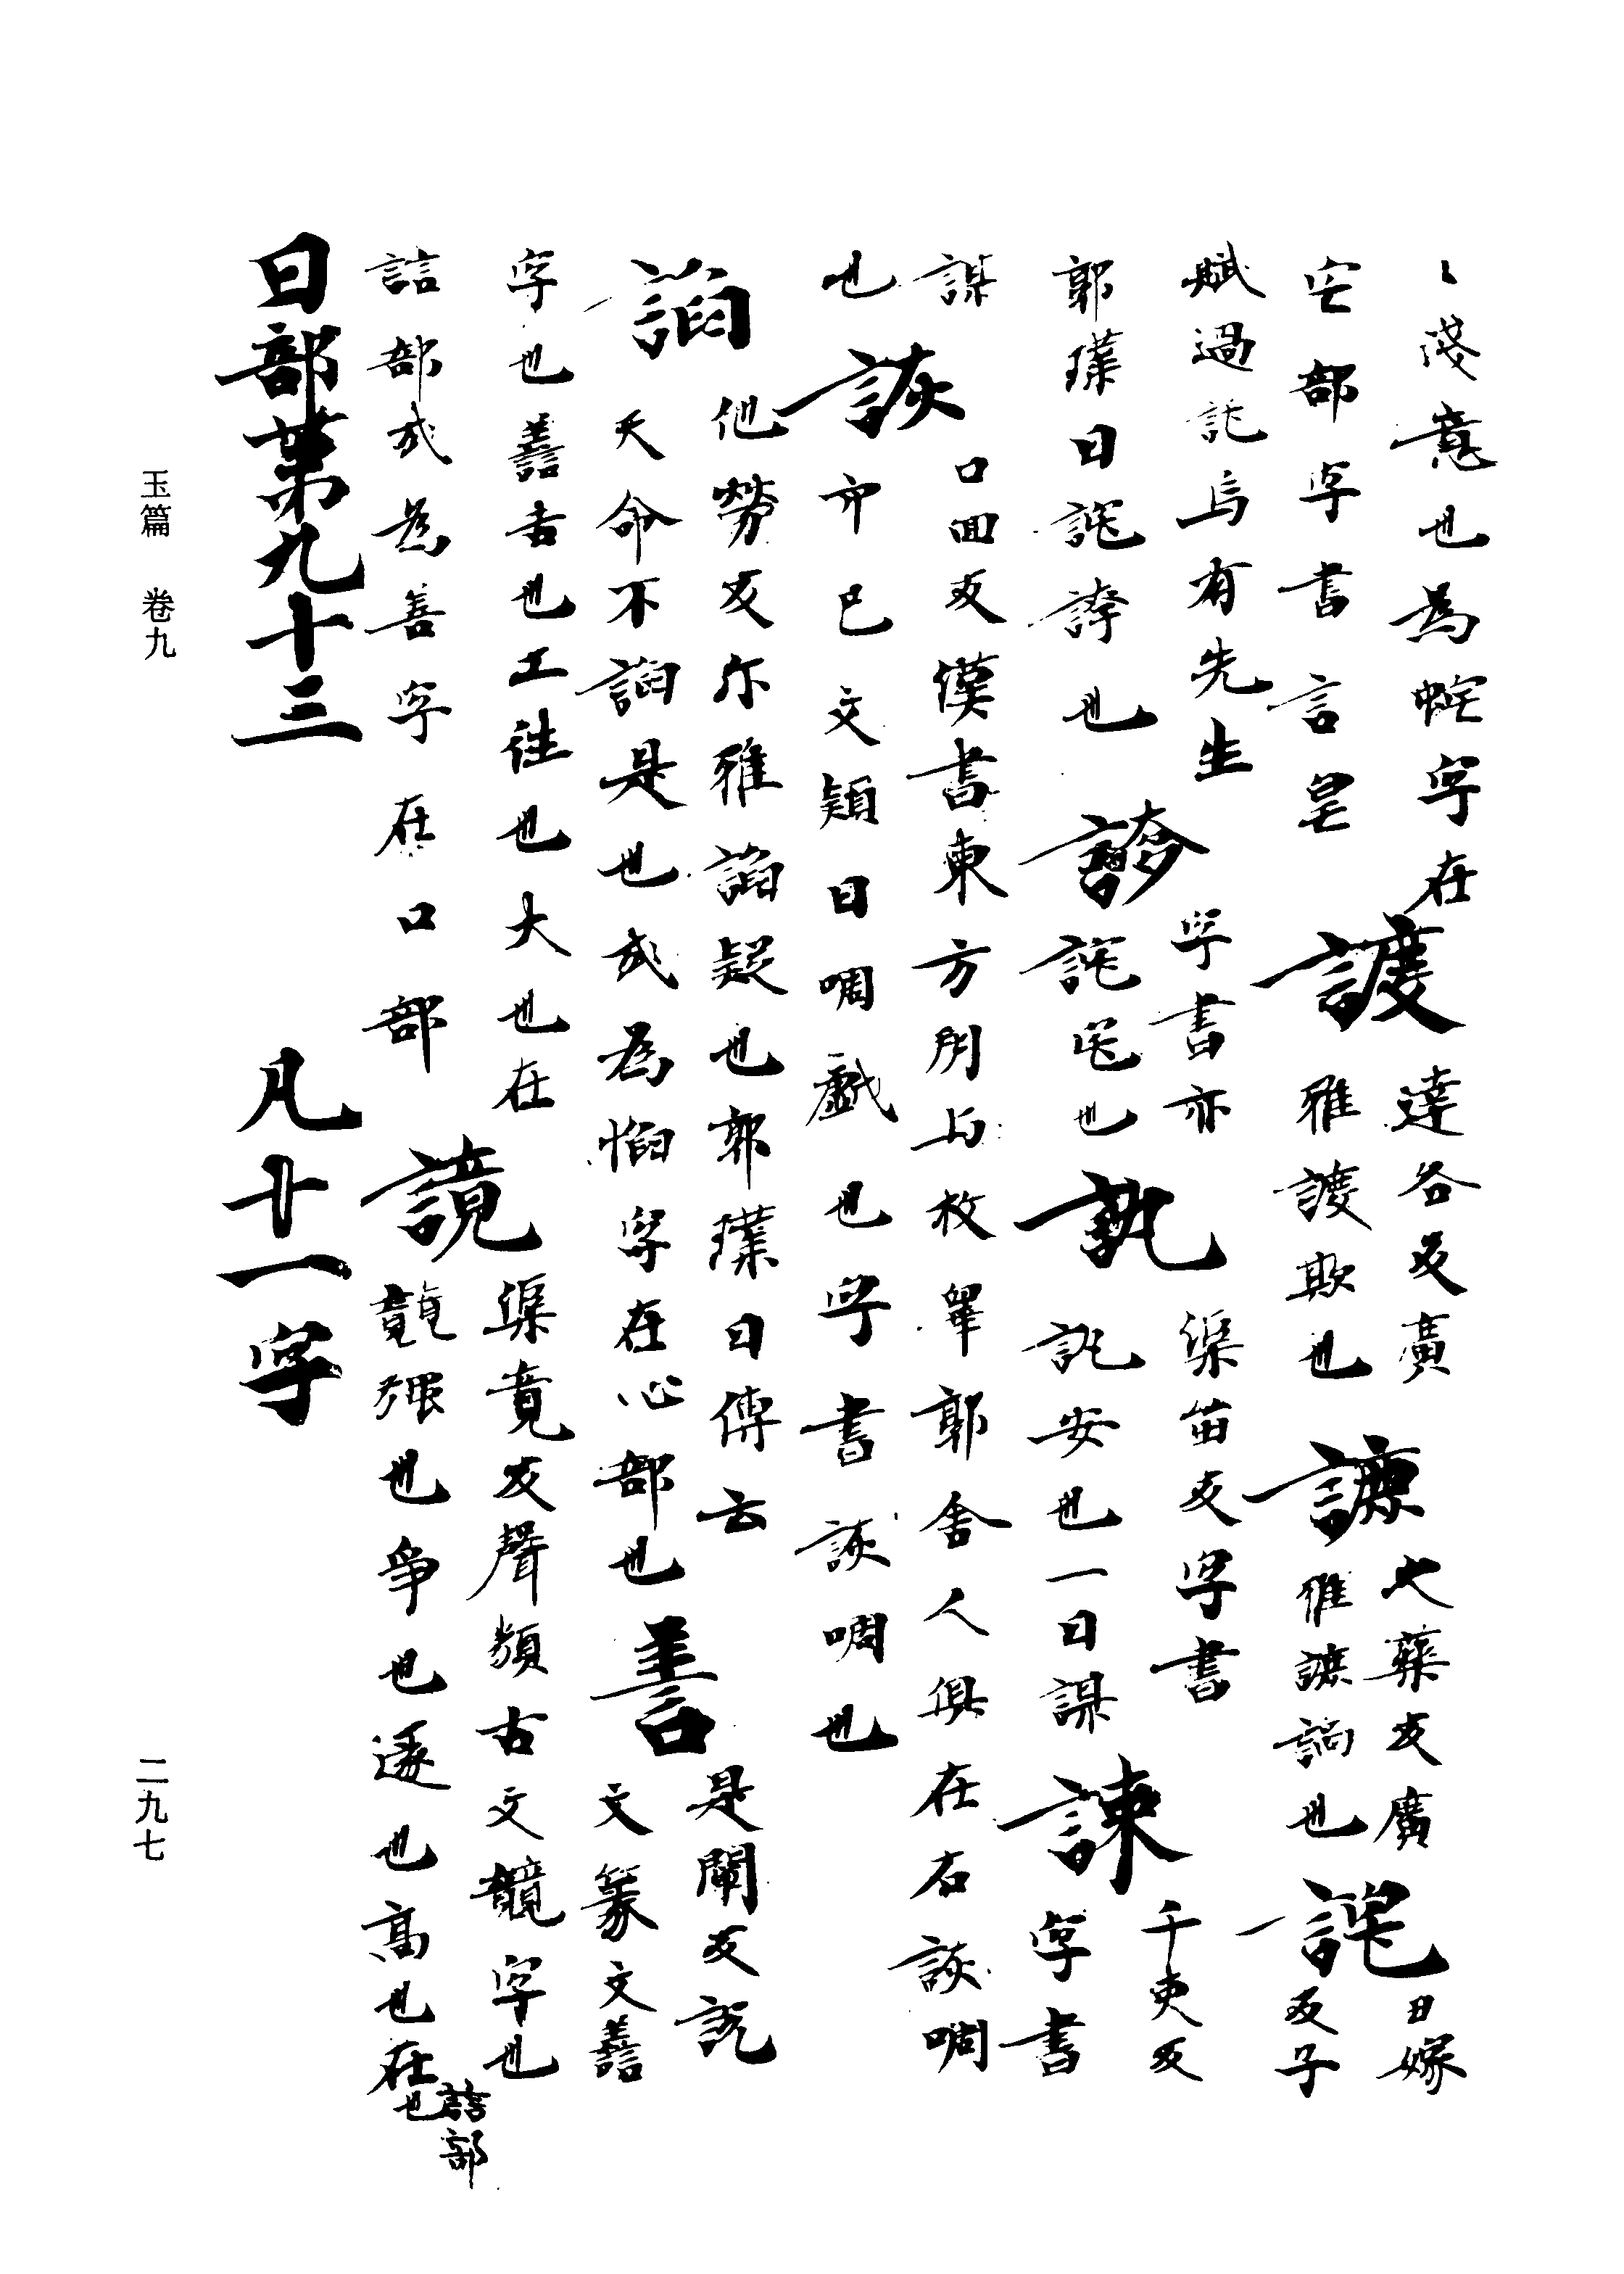 〻淺意也為蛇字在
宀部字書言皃
謢
達各反廣
雅謢欺也
謶
七藥反廣
雅謶謫也
詫
丑嫁
反子
賦過詫烏有先生
郭璞曰詫誇也
字書亦
詫字也
訄
渠留反字書
訄安也一曰謀
諫
千吏反
字書
謀
也
詼
口回反漢書東方朔与枚睪郭舍人俱在右詼啁
而已文穎曰啁戲也字書詼啁也
謟
他勞反尓雅謟疑也郭璞曰傳云
天命不謟是也或為慆字在心部也
善
是闡反說
文篆文譱
字也譱吉也工往也大也在
誩部或為善字在口部
渠竟反聲類古文競字也
競强也爭也遽也高也在誩部也
曰部第九十三 凡十一字
玉篇 卷九
二九七